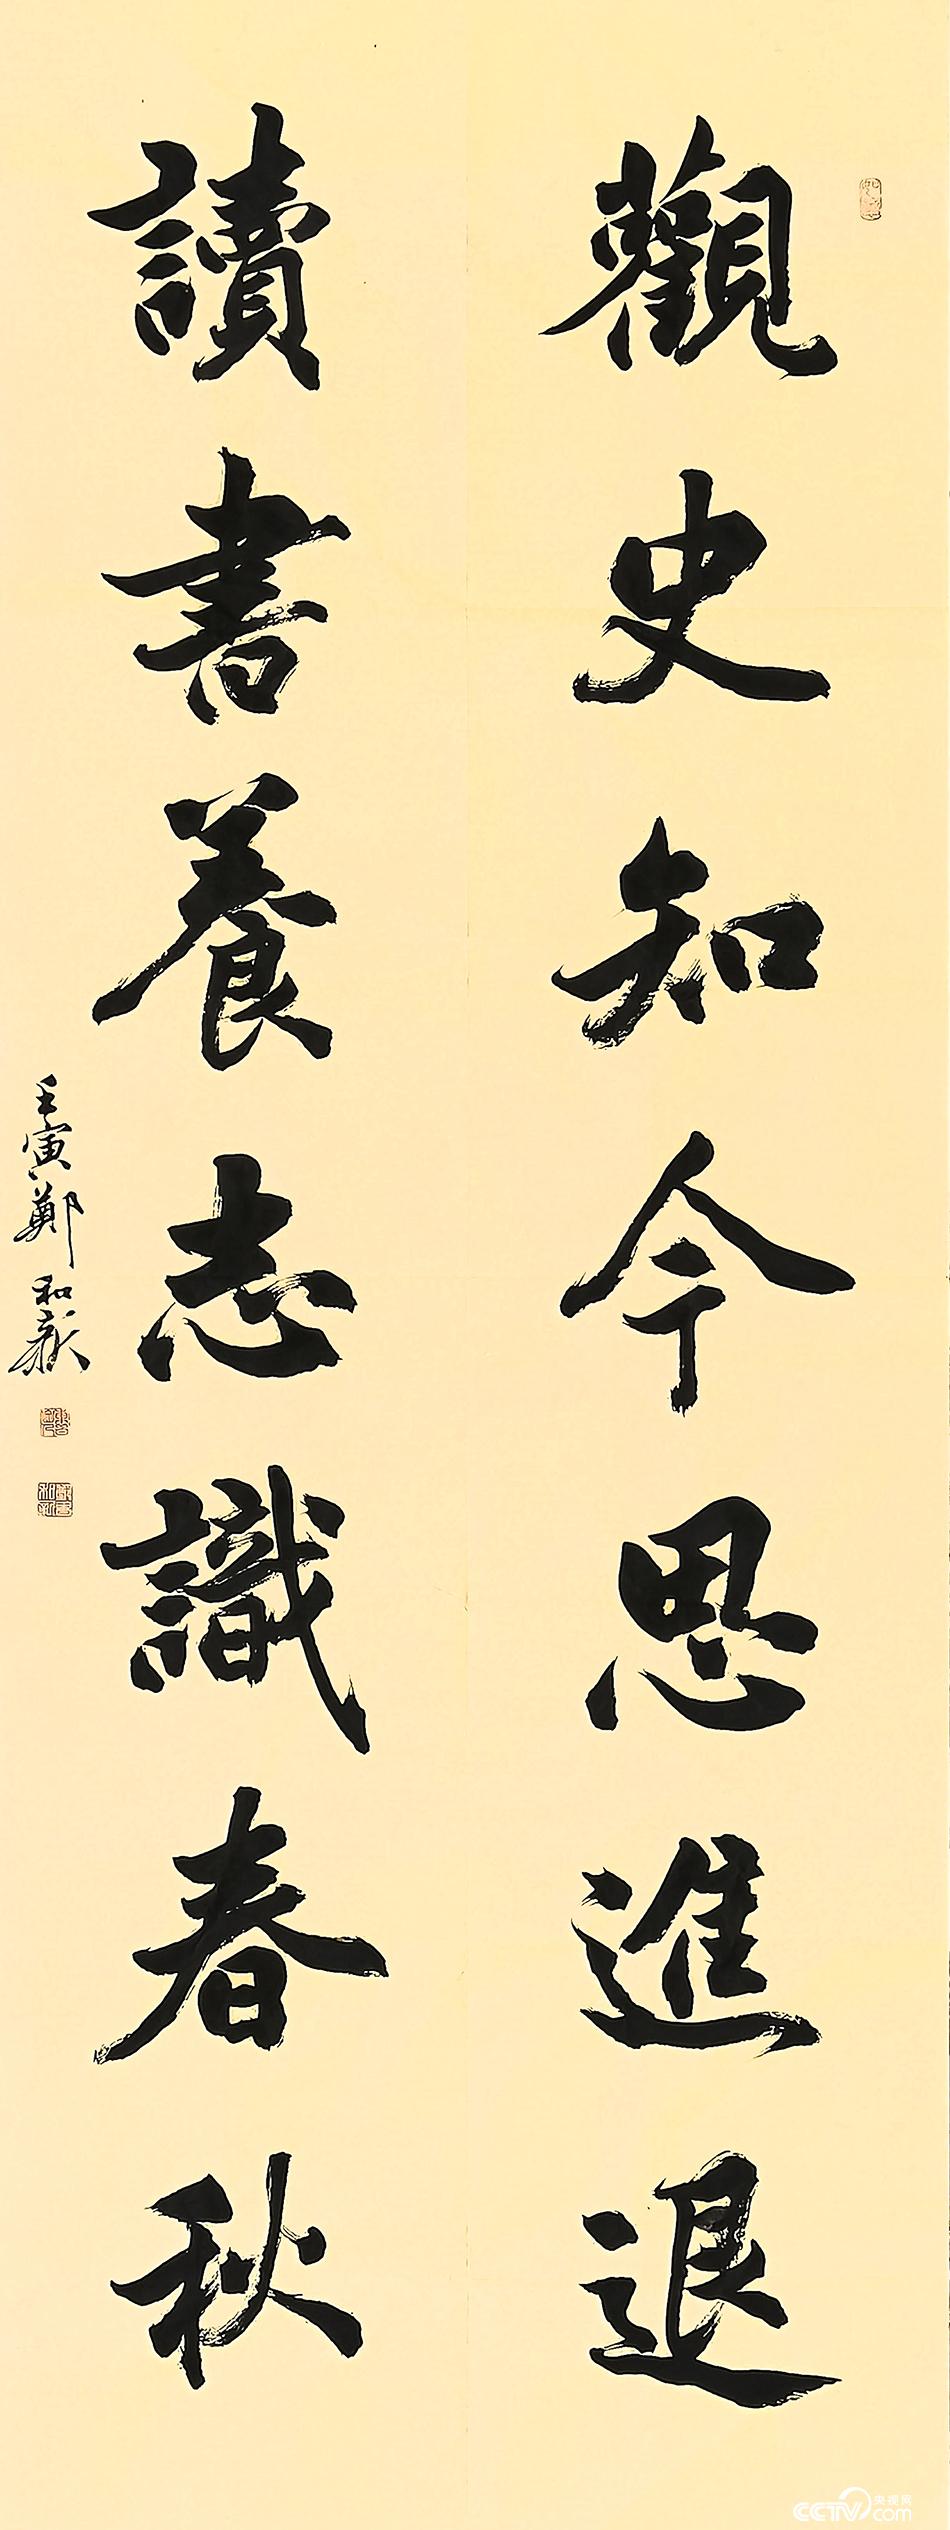 觀史知今思進退
讀書養志識春秋
壬寅鄭和新
央视网
CCTV.com